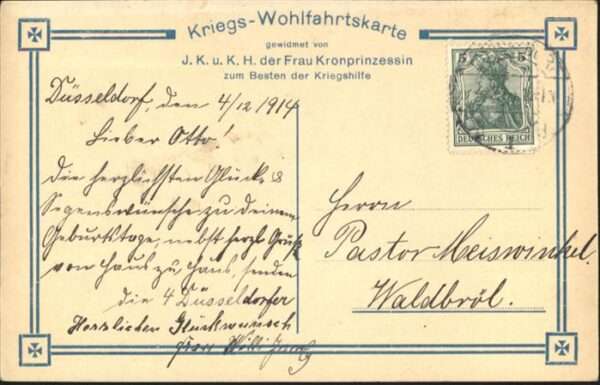 Kriegs-Wohlfahrtskarte
gewidmet von
J. K. u. K. H. der Frau Kronprinzessin
zum Besten der Kriegshilfe
5 5
DEUTSCHES REICH
Düsseldorf, den 4/12 1914
Lieber Otto!
Die herzlichsten Glück- &
Segenswünsche zu deinem
Geburtstage, nebst herzl. Gruß
von Haus zu Haus, senden
die 4 Düsseldorfer
Herzlichen Glückwunsch
Willi
Herrn
Pastor Meiswinkel.
Waldbröl.